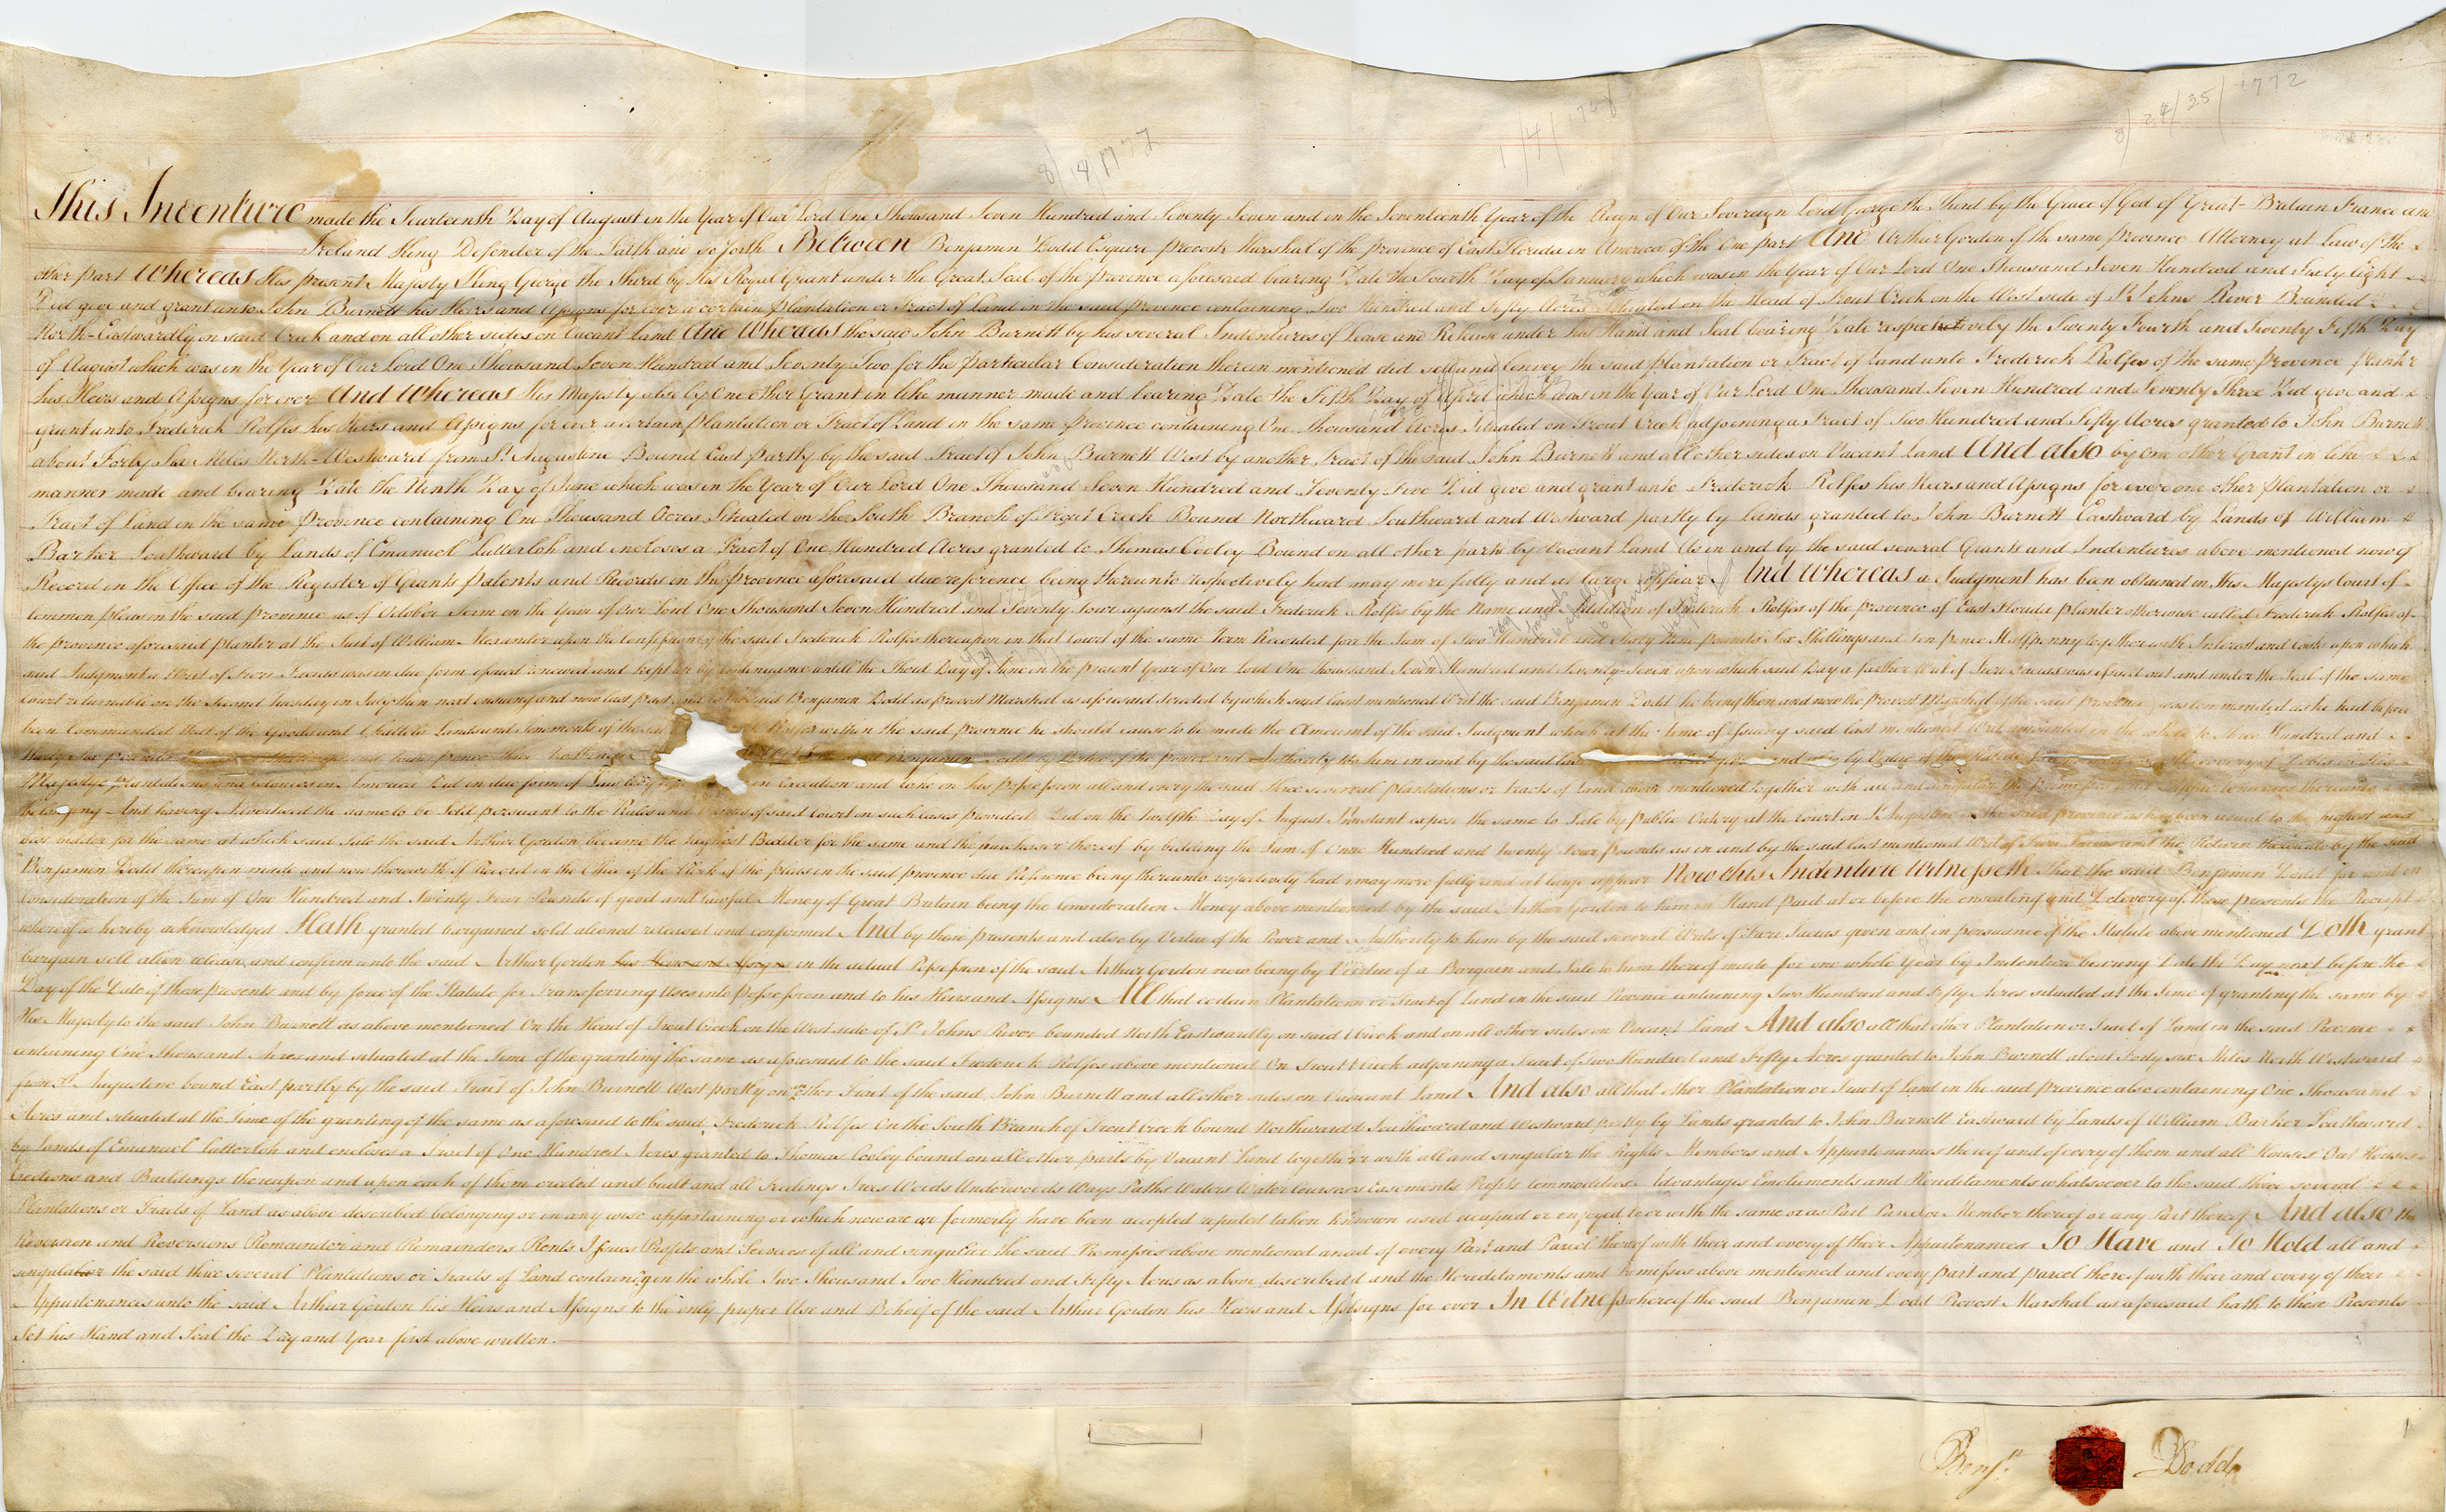 8/14/1777
1/4/1768
8/24/25/1772
This Indenture made the Fourteenth Day of August in the Year of Our Lord One Thousand Seven Hundred and Seventy Seven and in the Seventeenth Year of the Reign of Our Sovereign Lord George the Third by the Grace of God of Great-Britain France and
Ireland King Defender of the Faith and so forth Between Benjamin Dodd Esquire Provost Marshal of the Province of East Florida in America of the One part And Arthur Gordon of the same Province Attorney at Law of the
other part Whereas His present Majesty King George the Third by His Royal Grant under the Great Seal of the Province aforesaid bearing Date the Fourth Day of January which was in the Year of Our Lord One Thousand Seven Hundred and Sixty Eight
Did give and grant unto John Burnett his Heirs and Assigns for Ever a certain Plantation or Tract of Land in the said Province containing Two Hundred and Fifty Acres situated on the Head of Trout Creek on the West side of St. Johns River Bounded
North-Eastwardly on said Creek and on all other sides on Vacant Land And Whereas the said John Burnett by his several Indentures of Lease and Release under his Hand and Seal bearing Date respectively the Twenty Fourth and Twenty Fifth Day
of August which was in the Year of Our Lord One Thousand Seven Hundred and Seventy Two for the particular Consideration therein mentioned did sell and convey the said Plantation or Tract of Land unto Frederick Rolfes of the same Province Planter
his Heirs and Assigns for ever And Whereas His Majesty also by One other Grant in like manner made and bearing Date the Fifth Day of April which was in the Year of Our Lord One Thousand Seven Hundred and Seventy Three Did give and
grant unto Frederick Rolfes his Heirs and Assigns for ever a certain Plantation or Tract of Land in the same Province containing One Thousand Acres Situated on Trout Creek adjoining a Tract of Two Hundred and Fifty Acres granted to John Burnett
about Forty Six Miles North-Westward from St. Augustine Bound East partly by the said Tract of John Burnett West by another Tract of the said John Burnett and all other sides on Vacant Land And also by One other Grant in like
manner made and bearing Date the Ninth Day of June which was in the Year of Our Lord One Thousand Seven Hundred and Seventy Five Did give and grant unto Frederick Rolfes his Heirs and Assigns for ever one other Plantation or
Tract of Land in the same Province containing One Thousand Acres Situated on the South Branch of Trout Creek Bound Northward Southward and Westward partly by Lands granted to John Burnett Eastward by Lands of William
Barker Southward by Lands of Emanuel Lutterloh and incloses a Tract of One Hundred Acres granted to Thomas Cooley Bound on all other parts by Vacant Land As in and by the said several Grants and Indentures above mentioned now of
Record in the Office of the Register of Grants Patents and Records in the Province aforesaid due reference being thereunto respectively had may more fully and at large appear And Whereas a Judgment has been obtained in His Majestys Court of
Common pleas in the said Province as of October Term in the Year of Our Lord One Thousand Seven Hundred and Seventy Four against the said Frederick Rolfes by the Name and Addition of Frederick Rolfes of the Province of East Florida planter otherwise called Frederick Rolfes of
the Province aforesaid planter at the Suit of William Alexander upon the Confession of the said Frederick Rolfes thereupon in that Court of the same Term Recorded for the Sum of Two Hundred and Sixty Nine pounds Six Shillings and Ten pence Halfpenny together with Interest and Costs upon which
said Judgment a Writ of Fieri Facias was in due form issued renewed and kept up by continuance untill the Third Day of June in the present Year of Our Lord One Thousand Seven Hundred and Seventy Seven upon which said Day a further Writ of Fieri Facias was issued out and under the Seal of the same
Court returnable on the Second Tuesday in July then next ensuing and now last past and to the said Benjamin Dodd as Provost Marshal as aforesaid directed by which said last mentioned Writ the said Benjamin Dodd he being then and now the Provost Marshal of the said Province was commanded as he had before
been Commanded that of the Goods and Chattels Lands and Tenements of the said Rolfes within the said Province he should cause to be made the Amount of the said Judgment which at the time of Issuing said last mentioned Writ amounted in the whole to Three Hundred and
pounds four pence Benjamin Dodd by Virtue of the power and Authority to him in and by the said given and also by Virtue of the Statute Recovery of Debts in His
Majestys Plantations and Colonies in America Did in due form of Law in Execution and take in his Possession all and every the said Three several Plantations or Tracts of Land above mentioned together with all and singular the Premises and Appurtenances thereunto
belonging And having Advertised the same to be Sold persuant to the Rules and of said Court in such cases provided Did on the Twelfth Day of August Instant expose the same to Sale by Public Outcry at the Court in St. Augustine in the said Province as has been usual to the highest and
best bidder for the same at which said Sale the said Arthur Gordon became the highest Bidder for the same and the purchaser thereof by bidding the Sum of One Hundred and Twenty Four Pounds as in and by the said last mentioned Writ of Fieri Facias and the Return thereunto by the said
Benjamin Dodd thereupon made and now thereof of Record in the Office of the Clerk of the pleas in the said Province due Reference being thereunto respectively had may more fully and at large appear Now this Indenture Witnesseth That the said Benjamin Dodd for and in
Consideration of the Sum of One Hundred and Twenty Four Pounds of good and lawful Money of Great Britain being the Consideration Money above mentioned by the said Arthur Gordon to him in Hand paid at or before the ensealing and Delivery of these presents the Receipt
whereof is hereby acknowledged Hath granted bargained sold aliened released and confirmed And by these presents and also by Virtue of the Power and Authority to him by the said several Writs of Fieri Facias given and in persuance of the Statute above mentioned Doth grant
bargain sell alien release and confirm unto the said Arthur Gordon his Heirs and Assigns in the actual Possession of the said Arthur Gordon now being by Virtue of a Bargain and Sale to him thereof made for one whole Year by Indenture bearing Date the Day next before the
Day of the Date of these presents and by force of the Statute for Transferring Uses into Possession and to his Heirs and Assigns All that certain Plantation or Tract of Land in the said Province containing Two Hundred and Fifty Acres situated at the Time of granting the same by
His Majesty to the said John Burnett as above mentioned On the Head of Trout Creek on the West side of St. Johns River bounded North Eastwardly on said Creek and on all other sides on Vacant Land And also all that other Plantation or Tract of Land in the said Province
containing One Thousand Acres and situated at the Time of the granting the same as aforesaid to the said Frederick Rolfes above mentioned On Trout Creek adjoining a Tract of Two Hundred and Fifty Acres granted to John Burnett about Forty six Miles North Westward
from St. Augustine bound East partly by the said Tract of John Burnett West partly on other Tract of the said John Burnett and all other sides on Vacant Land And also all that other Plantation or Tract of Land in the said province also containing One Thousand
Acres and situated at the time of the granting of the same as aforesaid to the said Frederick Rolfes On the South Branch of Trout Creek bound Northward Southward and Westward partly by Lands granted to John Burnett Eastward by Lands of William Barker Southward
by Lands of Emanuel Lutterloh and encloses a Tract of One Hundred Acres granted to Thomas Cooley bound on all other parts by Vacant Land together with all and singular the Rights Members and Appurtenances thereof and of every of them and all Houses Out Houses
Erections and Buildings thereupon and upon each of them erected and built and all Feedings Trees Woods Underwoods Ways Paths Waters Water Courses Easements Profits Commodities Advantages Emoluments and Hereditaments whatsoever to the said three several
Plantations or Tracts of Land as above described belonging or in any wise appertaining or which now are or formerly have been accepted reputed taken known used occupied or enjoyed to or with the same or as Part Parcel or Member thereof or any Part thereof And also the
Reversion and Reversions Remainder and Remainders Rents Issues Profits and Services of all and singular the said Premisses above mentioned and of every Part and Parcel thereof with their and every of their Appurtenances To Have and To Hold all and
singular the said three several Plantations or Tracts of Land containing in the whole Two Thousand Two Hundred and Fifty Acres as above described and the Hereditaments and Premisses above mentioned and every part and parcel thereof with their and every of their
Appurtenances unto the said Arthur Gordon his Heirs and Assigns to the only proper Use and Behoof of the said Arthur Gordon his Heirs and Assigns for ever In Witness whereof the said Benjamin Dodd Provost Marshal as aforesaid hath to these Presents
Set his Hand and Seal the Day and Year first above written.
Benjn. Dodd